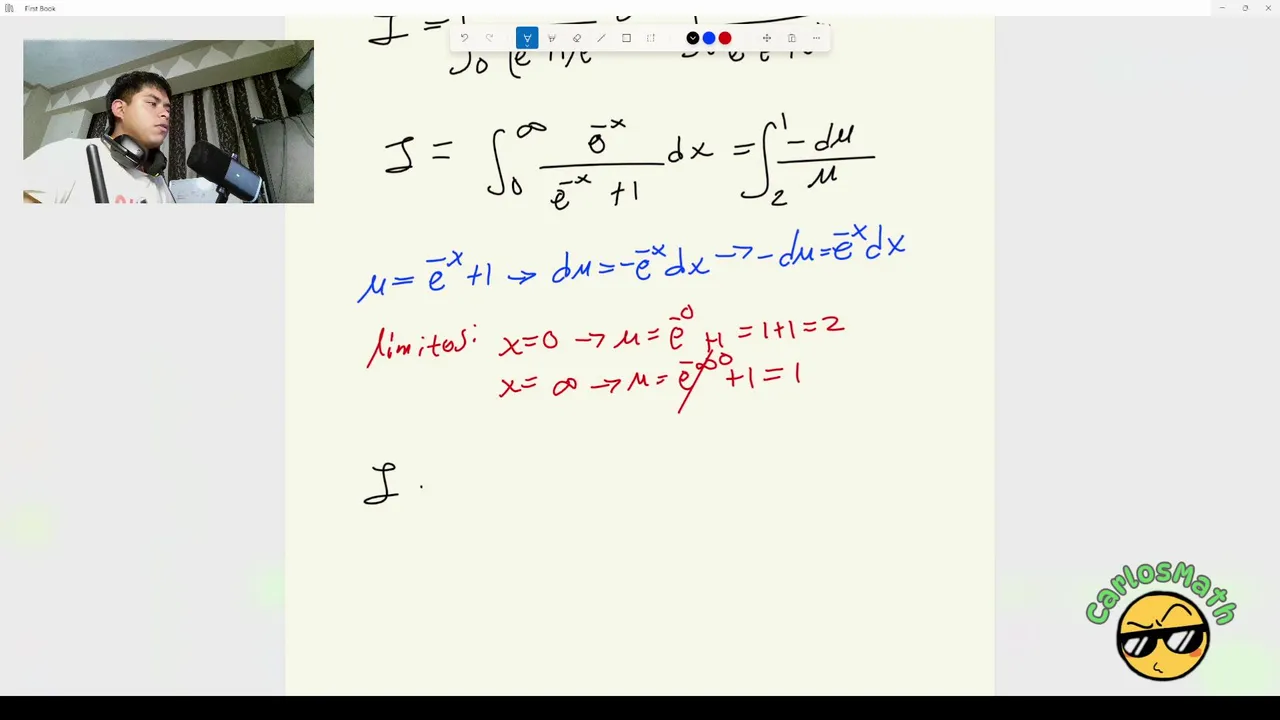 First Book
I =
I = ∫₀^∞ e^-x / (e^-x + 1) dx = ∫₂^1 -dμ / μ
μ = e^-x + 1 → dμ = -e^-x dx → -dμ = e^-x dx
límites: x = 0 → μ = e^-0 + 1 = 1 + 1 = 2
x = ∞ → μ = e^-∞ 0 + 1 = 1
I
CarlosMath